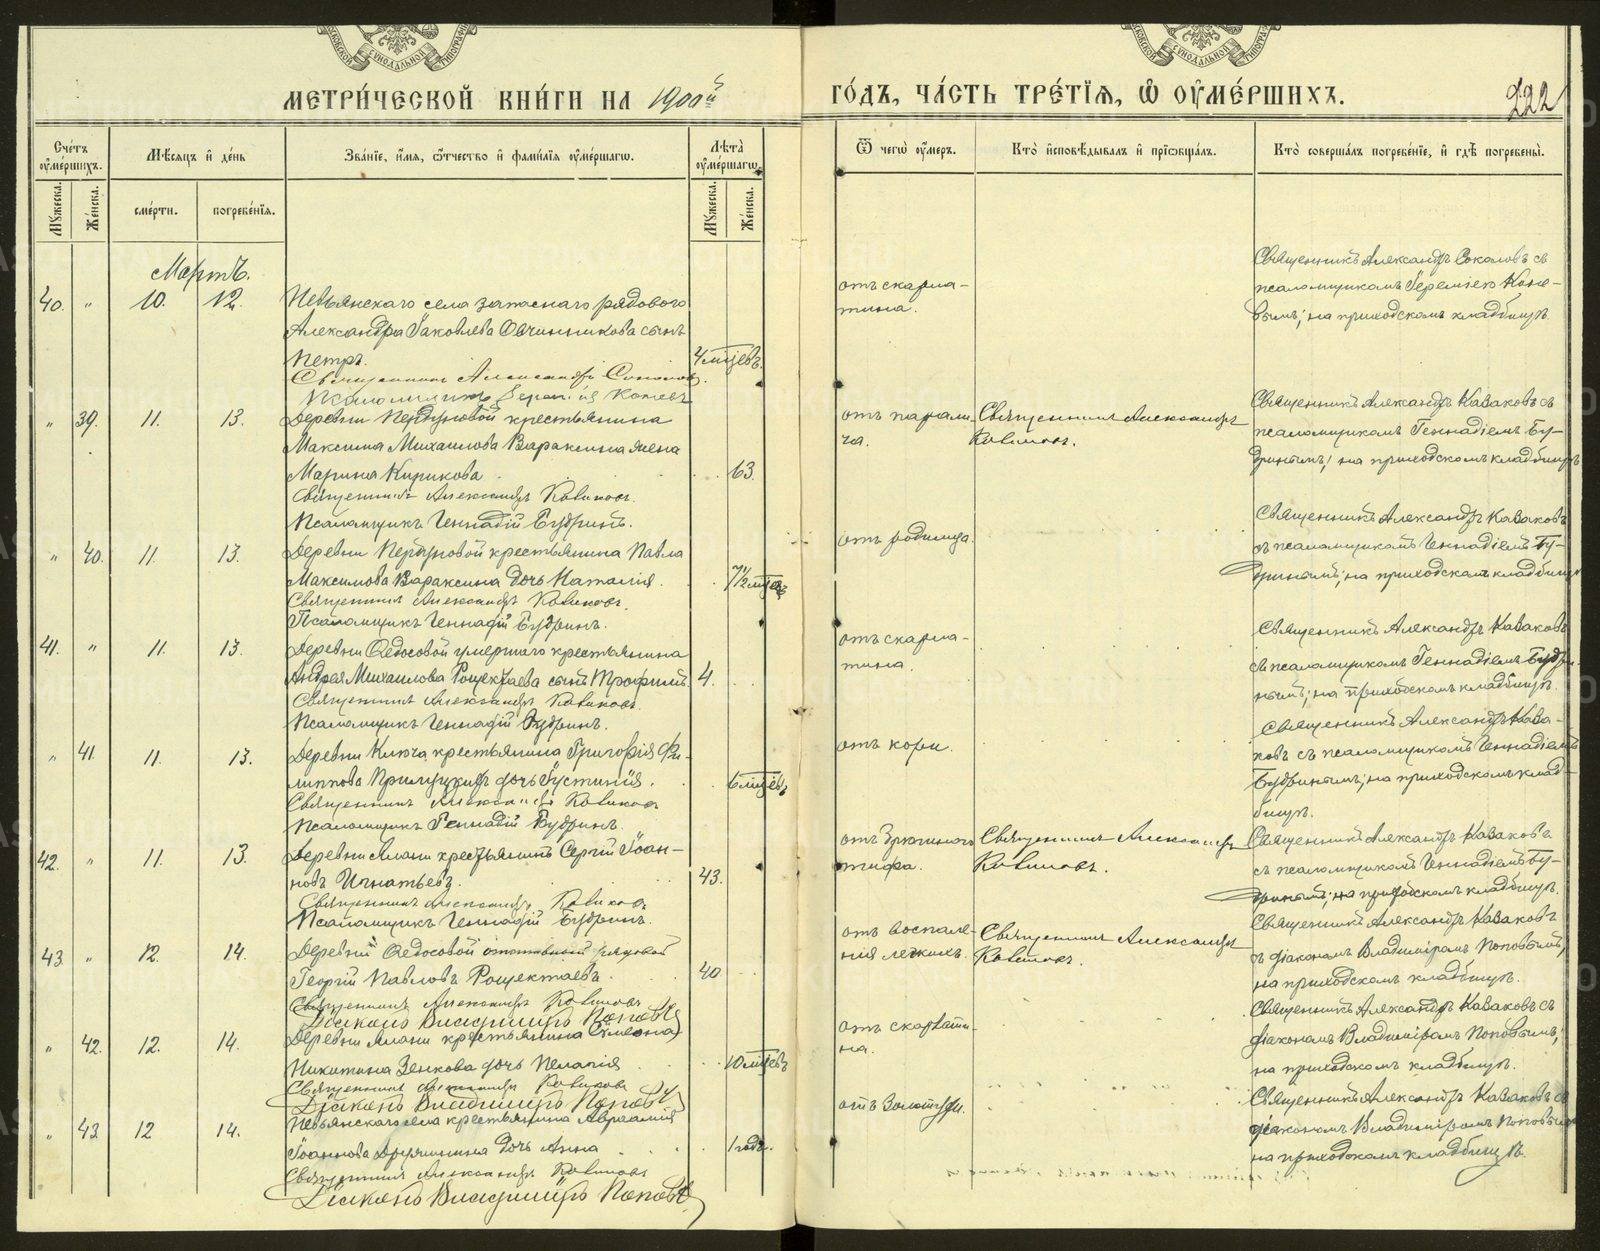 МЕТРИ́ЧЕСКОЙ КНИ́ГИ НА 1900й
ГО́ДЪ, ЧА́СТЬ ТРЕ́ТІЯ, Ѽ ОУ҆МЕ́РШИХЪ.
222
Сче́тъ оу҆ме́ршихъ.
Мѣ́сяцъ и҆ де́нь
Зва́ніе, и҆́мя, ѻ҆́тчество и҆ фами́лія оу҆ме́ршагѡ.
Лѣ́та оу҆ме́ршагѡ.
Ѿ чегѡ̀ оу҆́меръ.
Кто̀ и҆сповѣ́дывалъ и҆ пріѡбща́лъ.
Кто̀ соверша́лъ погребе́ніе, и҆ гдѣ̀ погребены̀.
Мꙋ́жеска.
Же́нска.
сме́рти.
погребе́нія.
Мꙋ́жеска.
Же́нска.
Мартъ.
40. " 10. 12.
Невьянскаго села запаснаго рядового
Александра Іаковлева Овчинникова сынъ
Петръ. 4 мѣсцевъ.
Священникъ Александръ Соколовъ.
Псаломщикъ Іеремія Коневъ
отъ скарла-
тина.
Священникъ Александръ Соколовъ съ
псаломщикомъ Іереміею Коне-
вымъ; на приходскомъ кладбищѣ.
" 39. 11. 13.
Деревни Пердуновой крестьянина
Максима Михаилова Вараксина жена
Марина Кирикова 63.
Священникъ Александръ Коваковъ.
Псаломщикъ Геннадій Будринъ.
отъ парали-
ча.
Священникъ Александръ
Казаковъ.
Священникъ Александръ Казаковъ съ
псаломщикомъ Геннадіемъ Бу-
дринымъ; на приходскомъ кладбищѣ
" 40. 11. 13.
Деревни Пердуновой крестьянина Павла
Максимова Вараксина дочь Наталія. 7 1/2 мѣсцевъ
Священникъ Александръ Казаковъ.
Псаломщикъ Геннадій Будринъ.
отъ родимца.
Священникъ Александръ Казаковъ
съ псаломщикомъ Геннадіемъ Бу-
дринымъ; на приходскомъ кладбищѣ
41. " 11. 13.
Деревни Ѳедосовой умершаго крестьянина
Андрея Михаилова Рощектаева сынъ Трофимъ. 4.
Священникъ Александръ Казаковъ.
Псаломщикъ Геннадій Будринъ.
отъ скарла-
тина.
Священникъ Александръ Казаковъ
съ псаломщикомъ Геннадіемъ Будри-
нымъ; на приходскомъ кладбищѣ.
" 41 11. 13.
Деревни Ключа крестьянина Григорія Фи-
липпова дочь Іустинія. 6 мѣсцевъ
Священникъ Александръ Казаковъ
Псаломщикъ Геннадій Будринъ.
отъ кори.
Священникъ Александръ Каза-
ковъ съ псаломщикомъ Геннадіемъ
Будринымъ; на приходскомъ клад-
бищѣ.
42. " 11. 13.
Деревни Алани крестьянинъ Сергій Іоан-
новъ Игнатьевъ. 43.
Священникъ Александръ Казаковъ
Псаломщикъ Геннадій Будринъ.
отъ брюшного
тифа.
Священникъ Александръ
Казаковъ.
Священникъ Александръ Казаковъ
съ псаломщикомъ Геннадіемъ Бу-
дринымъ; на приходскомъ кладбищѣ.
43. " 12. 14.
Деревни Ѳедосовой отставной рядовой
Георгій Павловъ Рощектаевъ. 40
Священникъ Александръ Казаковъ
Діаконъ Владиміръ Поповъ
отъ воспале-
нія легкихъ.
Священникъ Александръ
Казаковъ.
Священникъ Александръ Казаковъ
съ діакономъ Владиміромъ Поповымъ;
на приходскомъ кладбищѣ.
" 42. 12. 14.
Деревни Алани крестьянина Симеона
Никитина Зенкова дочь Пелагія 10 мѣсцевъ
Священникъ Александръ Казаковъ
Діаконъ Владиміръ Поповъ
отъ скарлати-
на.
Священникъ Александръ Казаковъ съ
діакономъ Владиміромъ Поповымъ;
на приходскомъ кладбищѣ.
" 43 12 14.
Невьянскаго села крестьянина Авраамія
Іоаннова Дружинина дочь Анна 1 годъ.
Священникъ Александръ Казаковъ
Діаконъ Владиміръ Поповъ
отъ золотухи.
Священникъ Александръ Казаковъ съ
діакономъ Владиміромъ Поповымъ
на приходскомъ кладбищѣ.